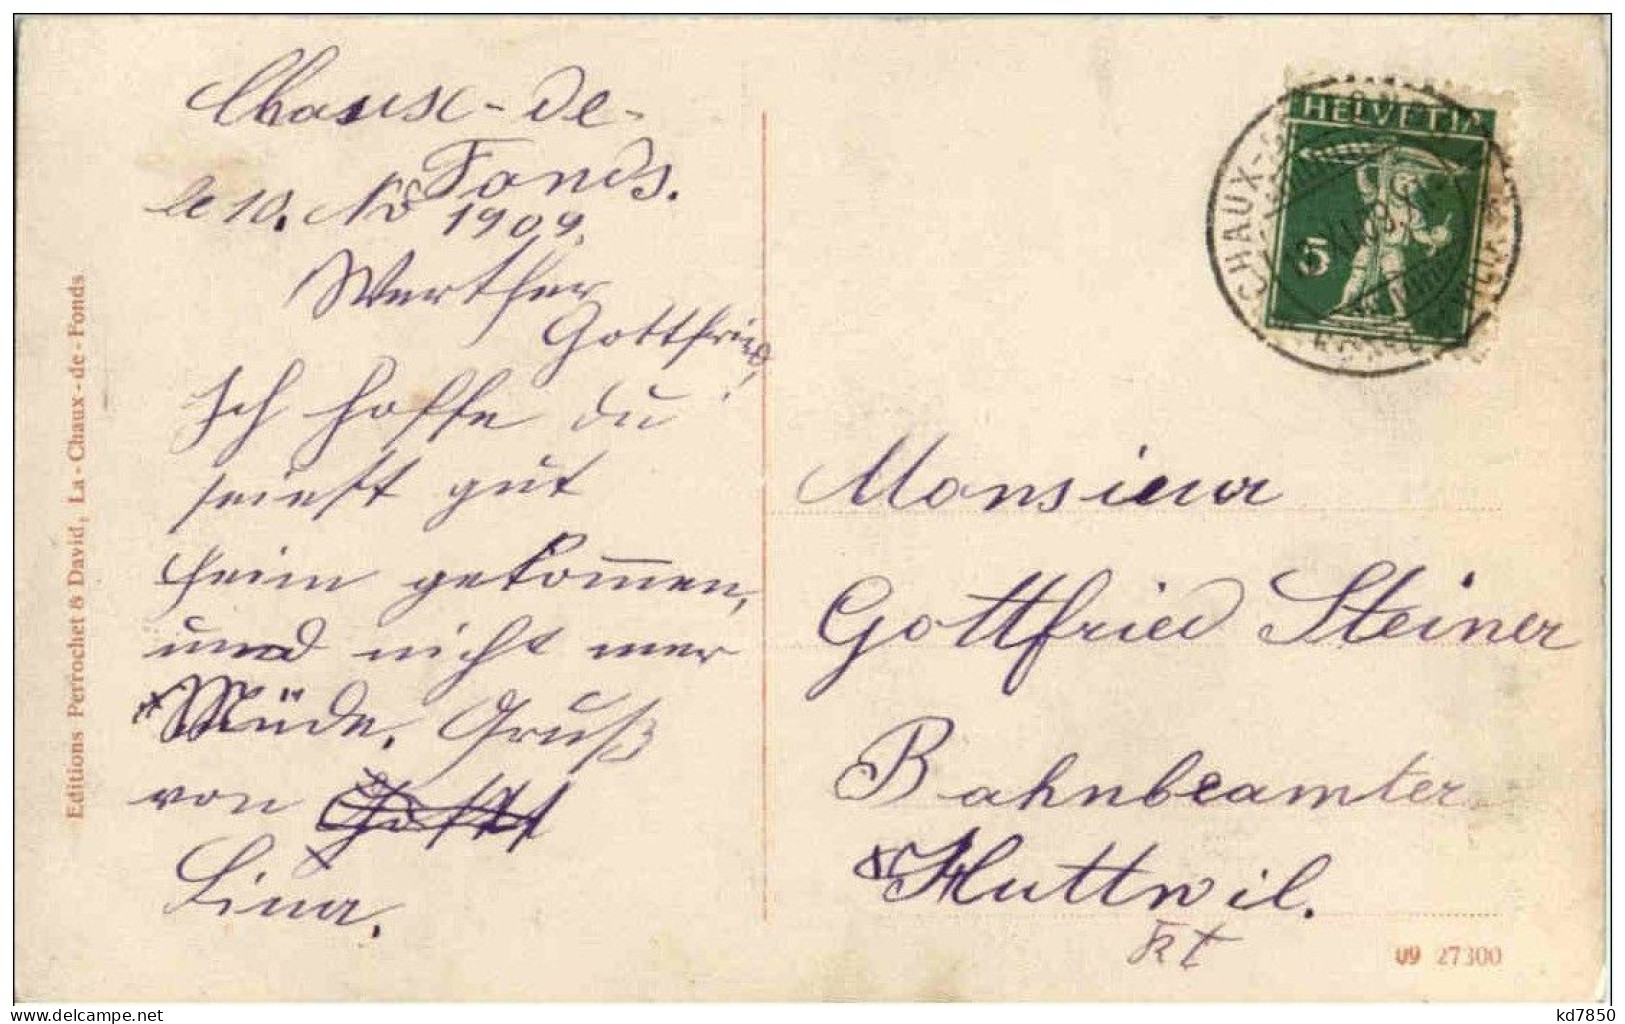 Chaux-de-
Fonds.
le 10. Nov 1909.
Werther
Gottfried!
Ich hoffe du
seiest gut
heim gekom̅en,
und nicht mer
Müde. Gruß
von
Lina.
Editions Perrochet & David, La-Chaux-de-Fonds
HELVETIA
5
CHAUX-
XI.09.
Monsieur
Gottfried Steiner
Bahnbeamter
Huttwil.
09 27300
www.delcampe.net
kd7850